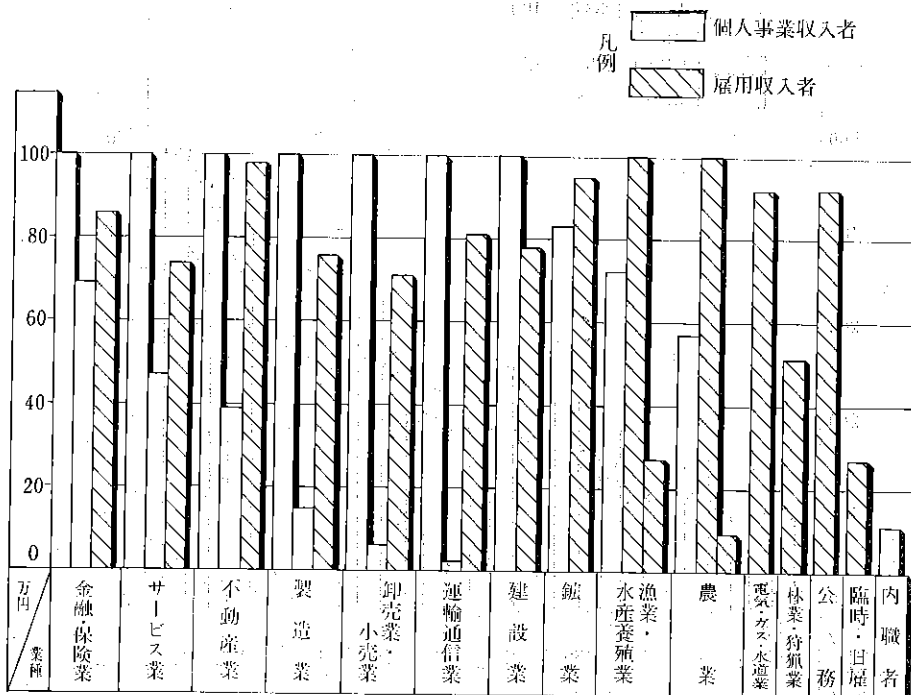 凡例
個人事業収入者
雇用収入者
100
80
60
40
20
0
万円
業種
金融・保険業
サービス業
不動産業
製造業
卸売業・小売業
運輸通信業
建設業
鉱業
漁業・水産養殖業
農業
電気・ガス・水道業
林業・狩猟業
公務
臨時・日雇
内職者